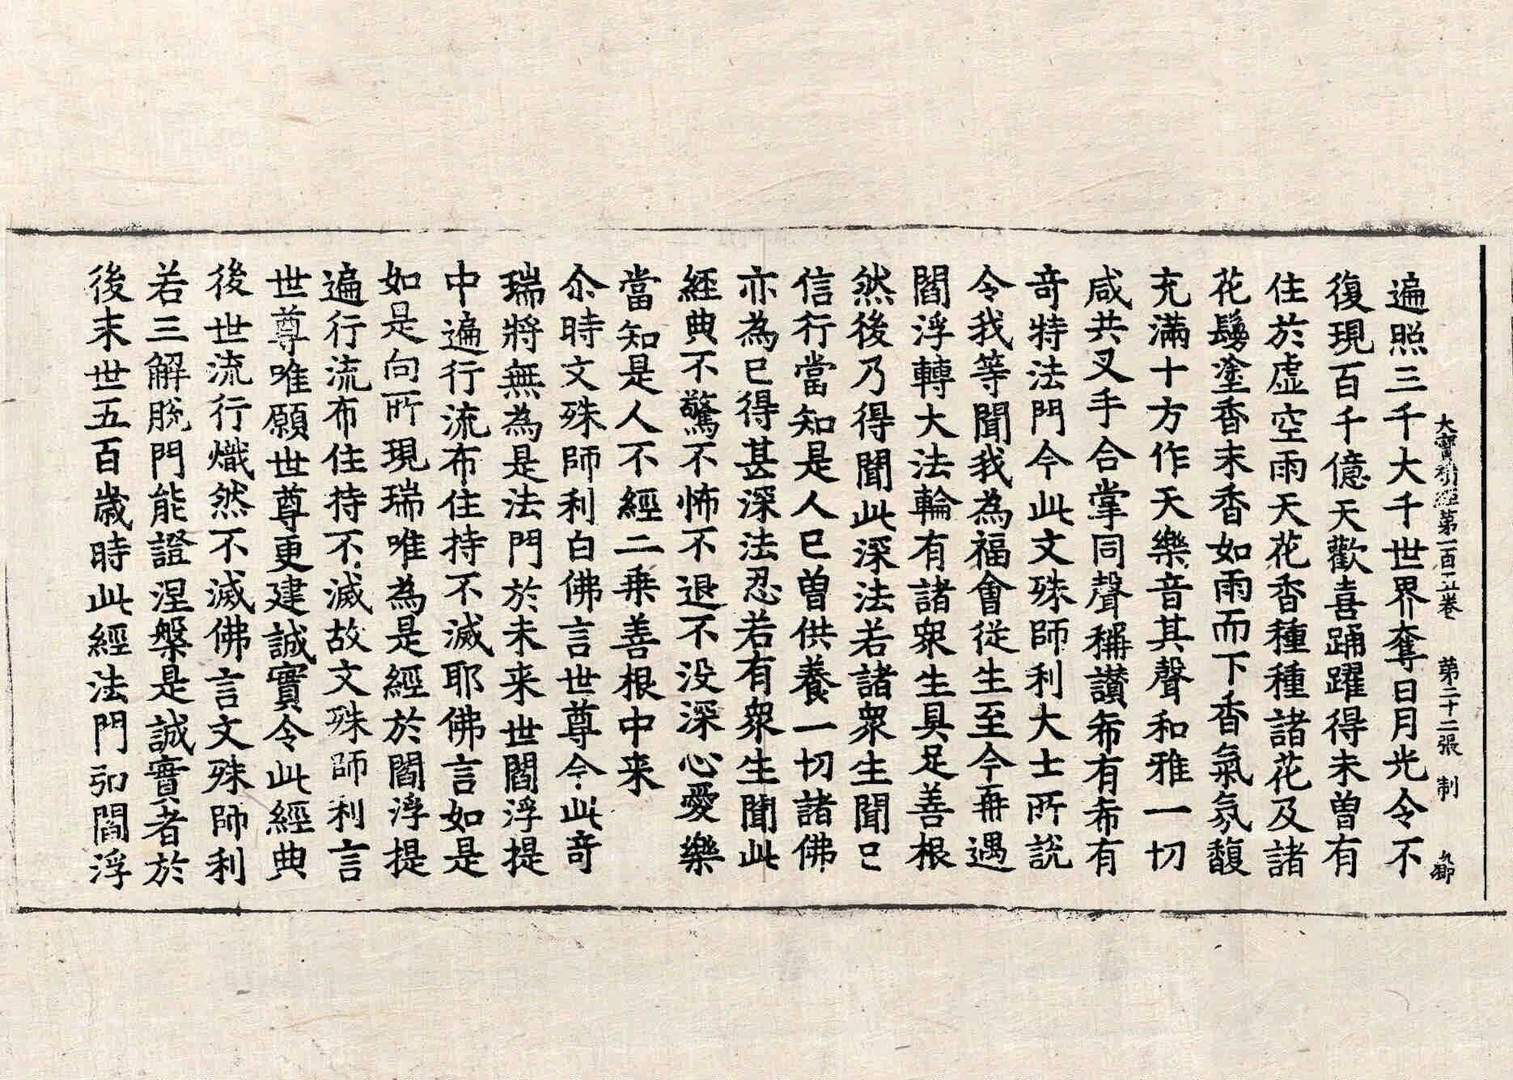 大寶積經第一百十五卷 第二十二張 制
遍照三千大千世界奪日月光令不
復現百千億天歡喜踊躍得未曾有
住於虛空雨天花香種種諸花及諸
花鬘塗香末香如雨而下香氣氛馥
充滿十方作天樂音其聲和雅一切
咸共叉手合掌同聲稱讃希有希有
奇特法門今此文殊師利大士所說
令我等聞我為福會從生至今再遇
閻浮轉大法輪有諸衆生具足善根
然後乃得聞此深法若諸衆生聞已
信行當知是人已曽供養一切諸佛
亦為已得甚深法忍若有衆生聞此
經典不驚不怖不退不没深心愛樂
當知是人不經二乗善根中来
尒時文殊師利白佛言世尊今此奇
瑞將無為是法門於未来世閻浮提
中遍行流布住持不滅耶佛言如是
如是向所現瑞唯為是經於閻浮提
遍行流布住持不滅故文殊師利言
世尊唯願世尊更建誠實令此經典
後世流行熾然不滅佛言文殊師利
若三解脫門能證涅槃是誠實者於
後末世五百歲時此經法門於閻浮